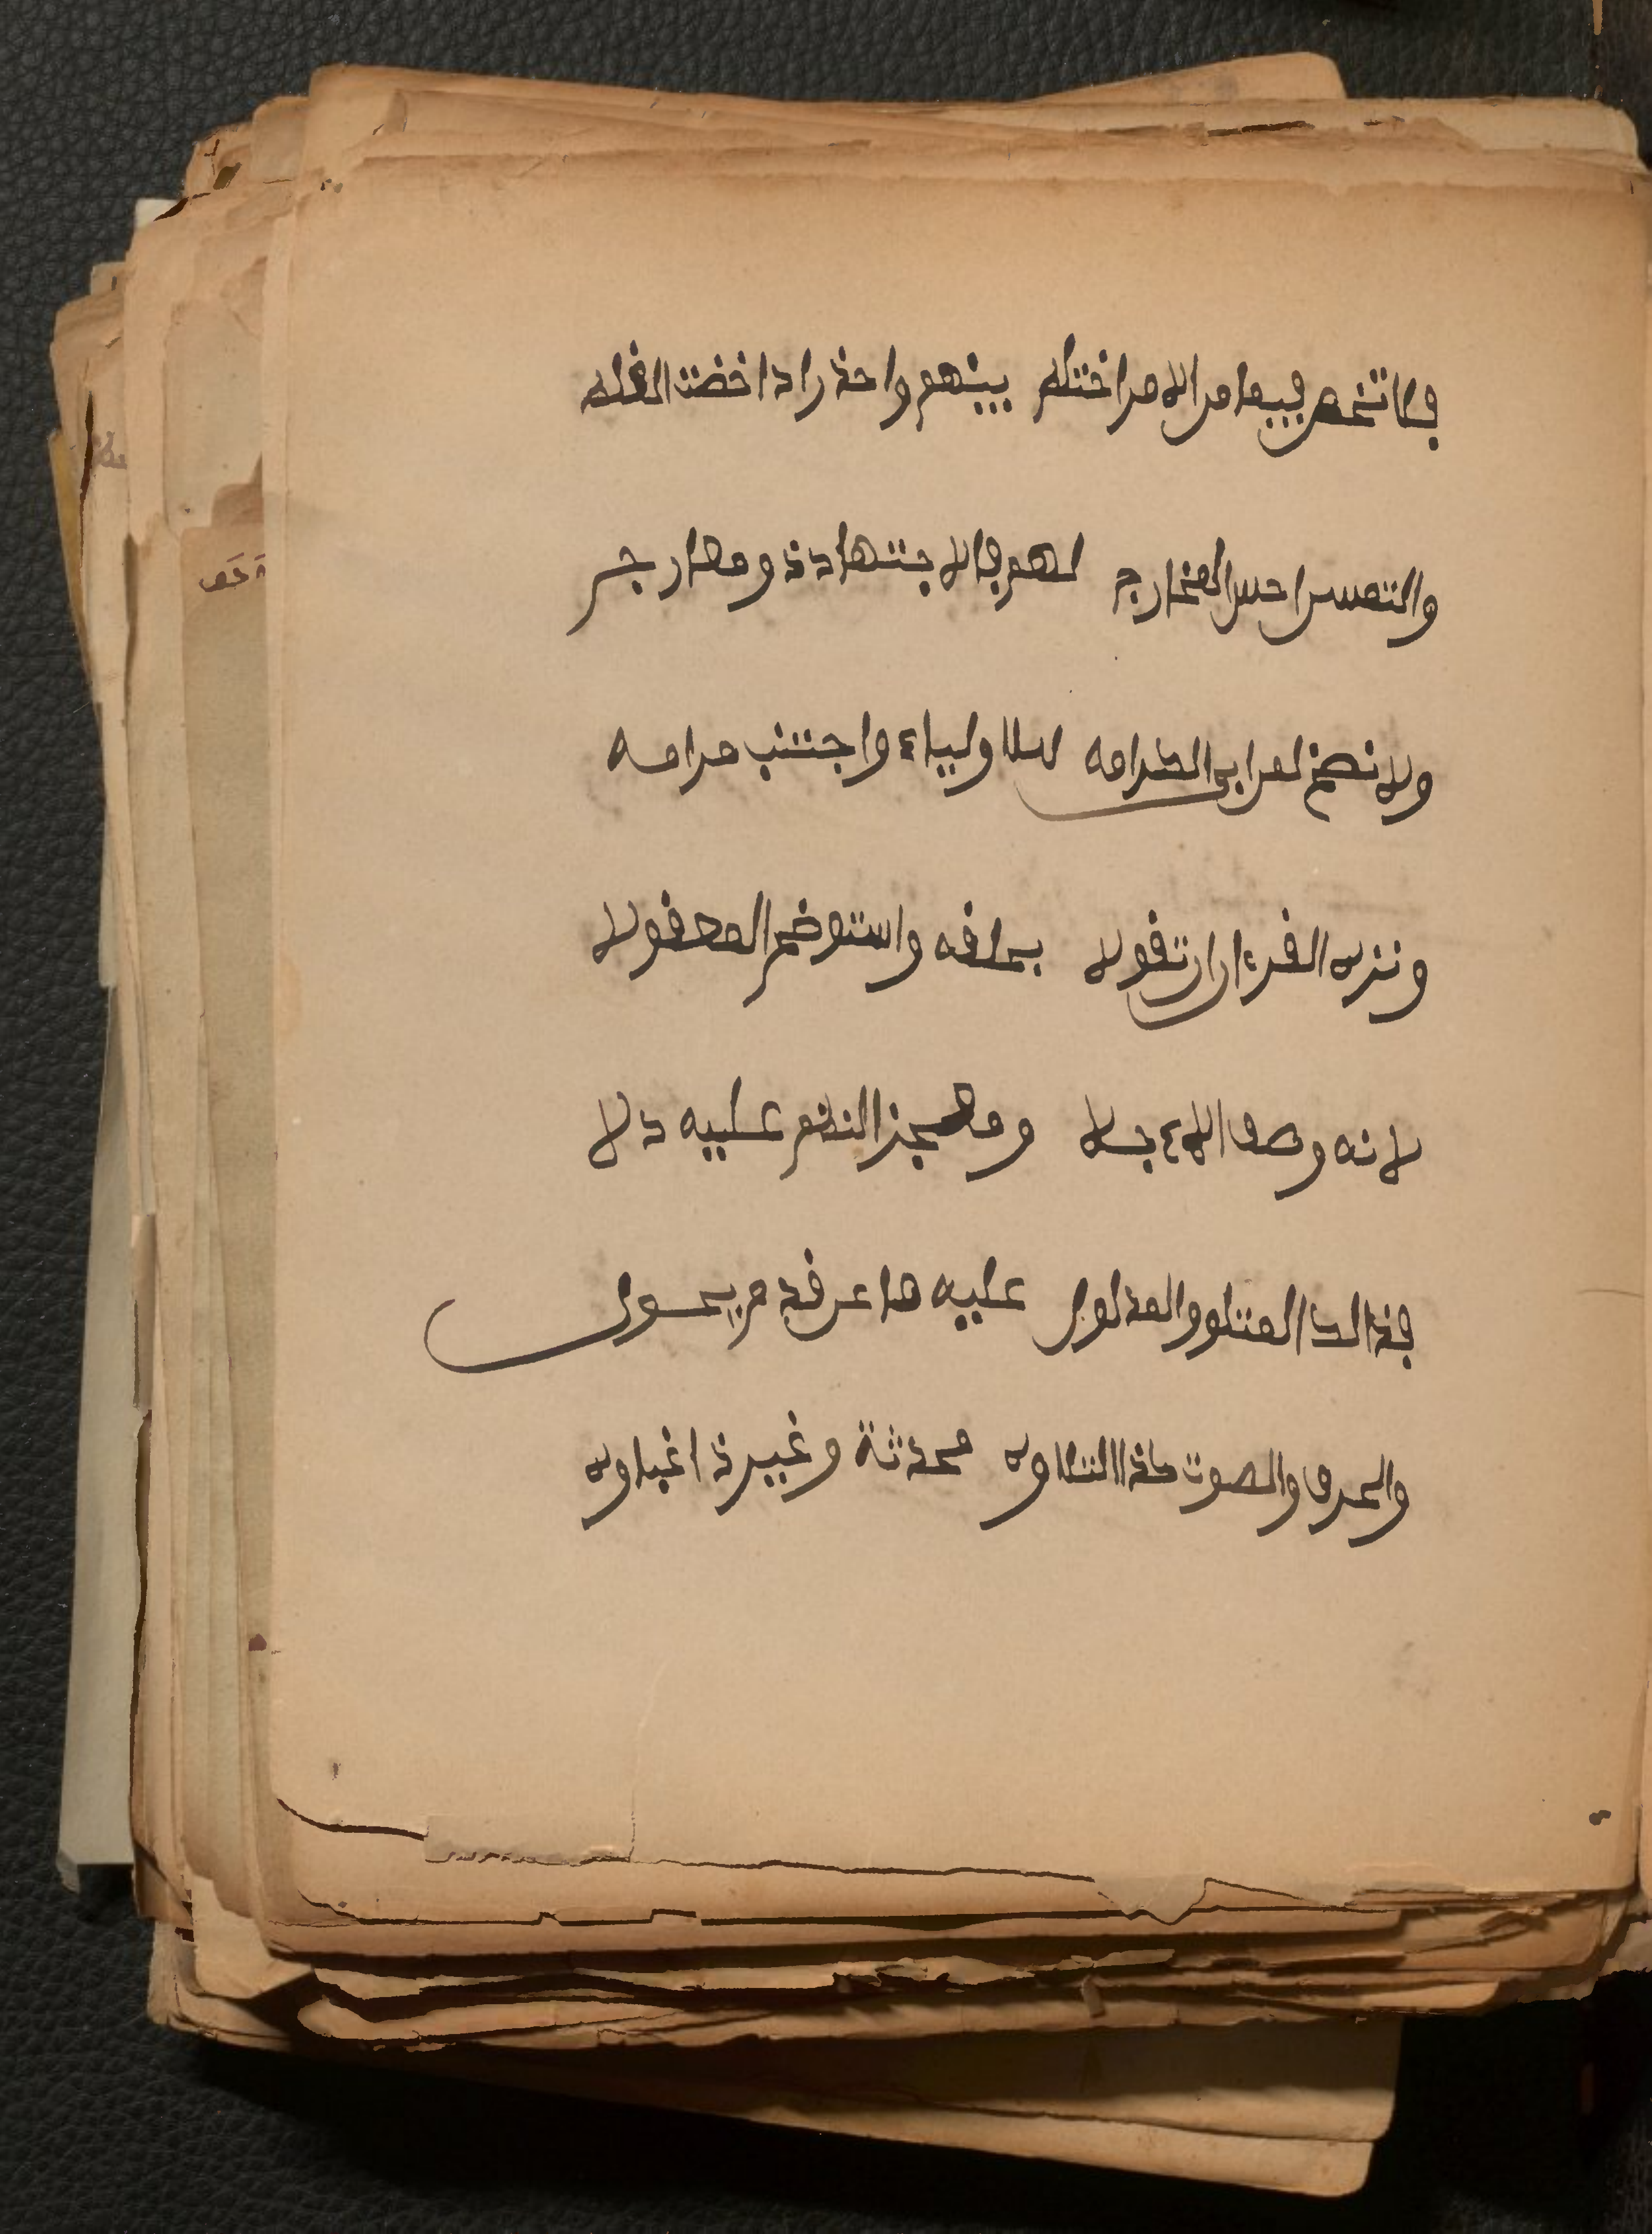 فلا تخض فيما من الامر اختلف بينهم واحذر اذا خضت الغلط
والتمسن احسن المخارج لهم فالاجتهاد ذو معارج
ولا تصخ لمن ابى الكرامه للاولياء واجتنب مرامه
ونزه القرءان ان تقولا بخلقه واستوضح المعقولا
لانه وصف الاله جلا ومعجز النظم عليه دلا
فذلك المتلو والمدلول عليه ما عن قدم يحول
والحرف والصوت كذا التلاوه محدثة وغير ذا غباوه